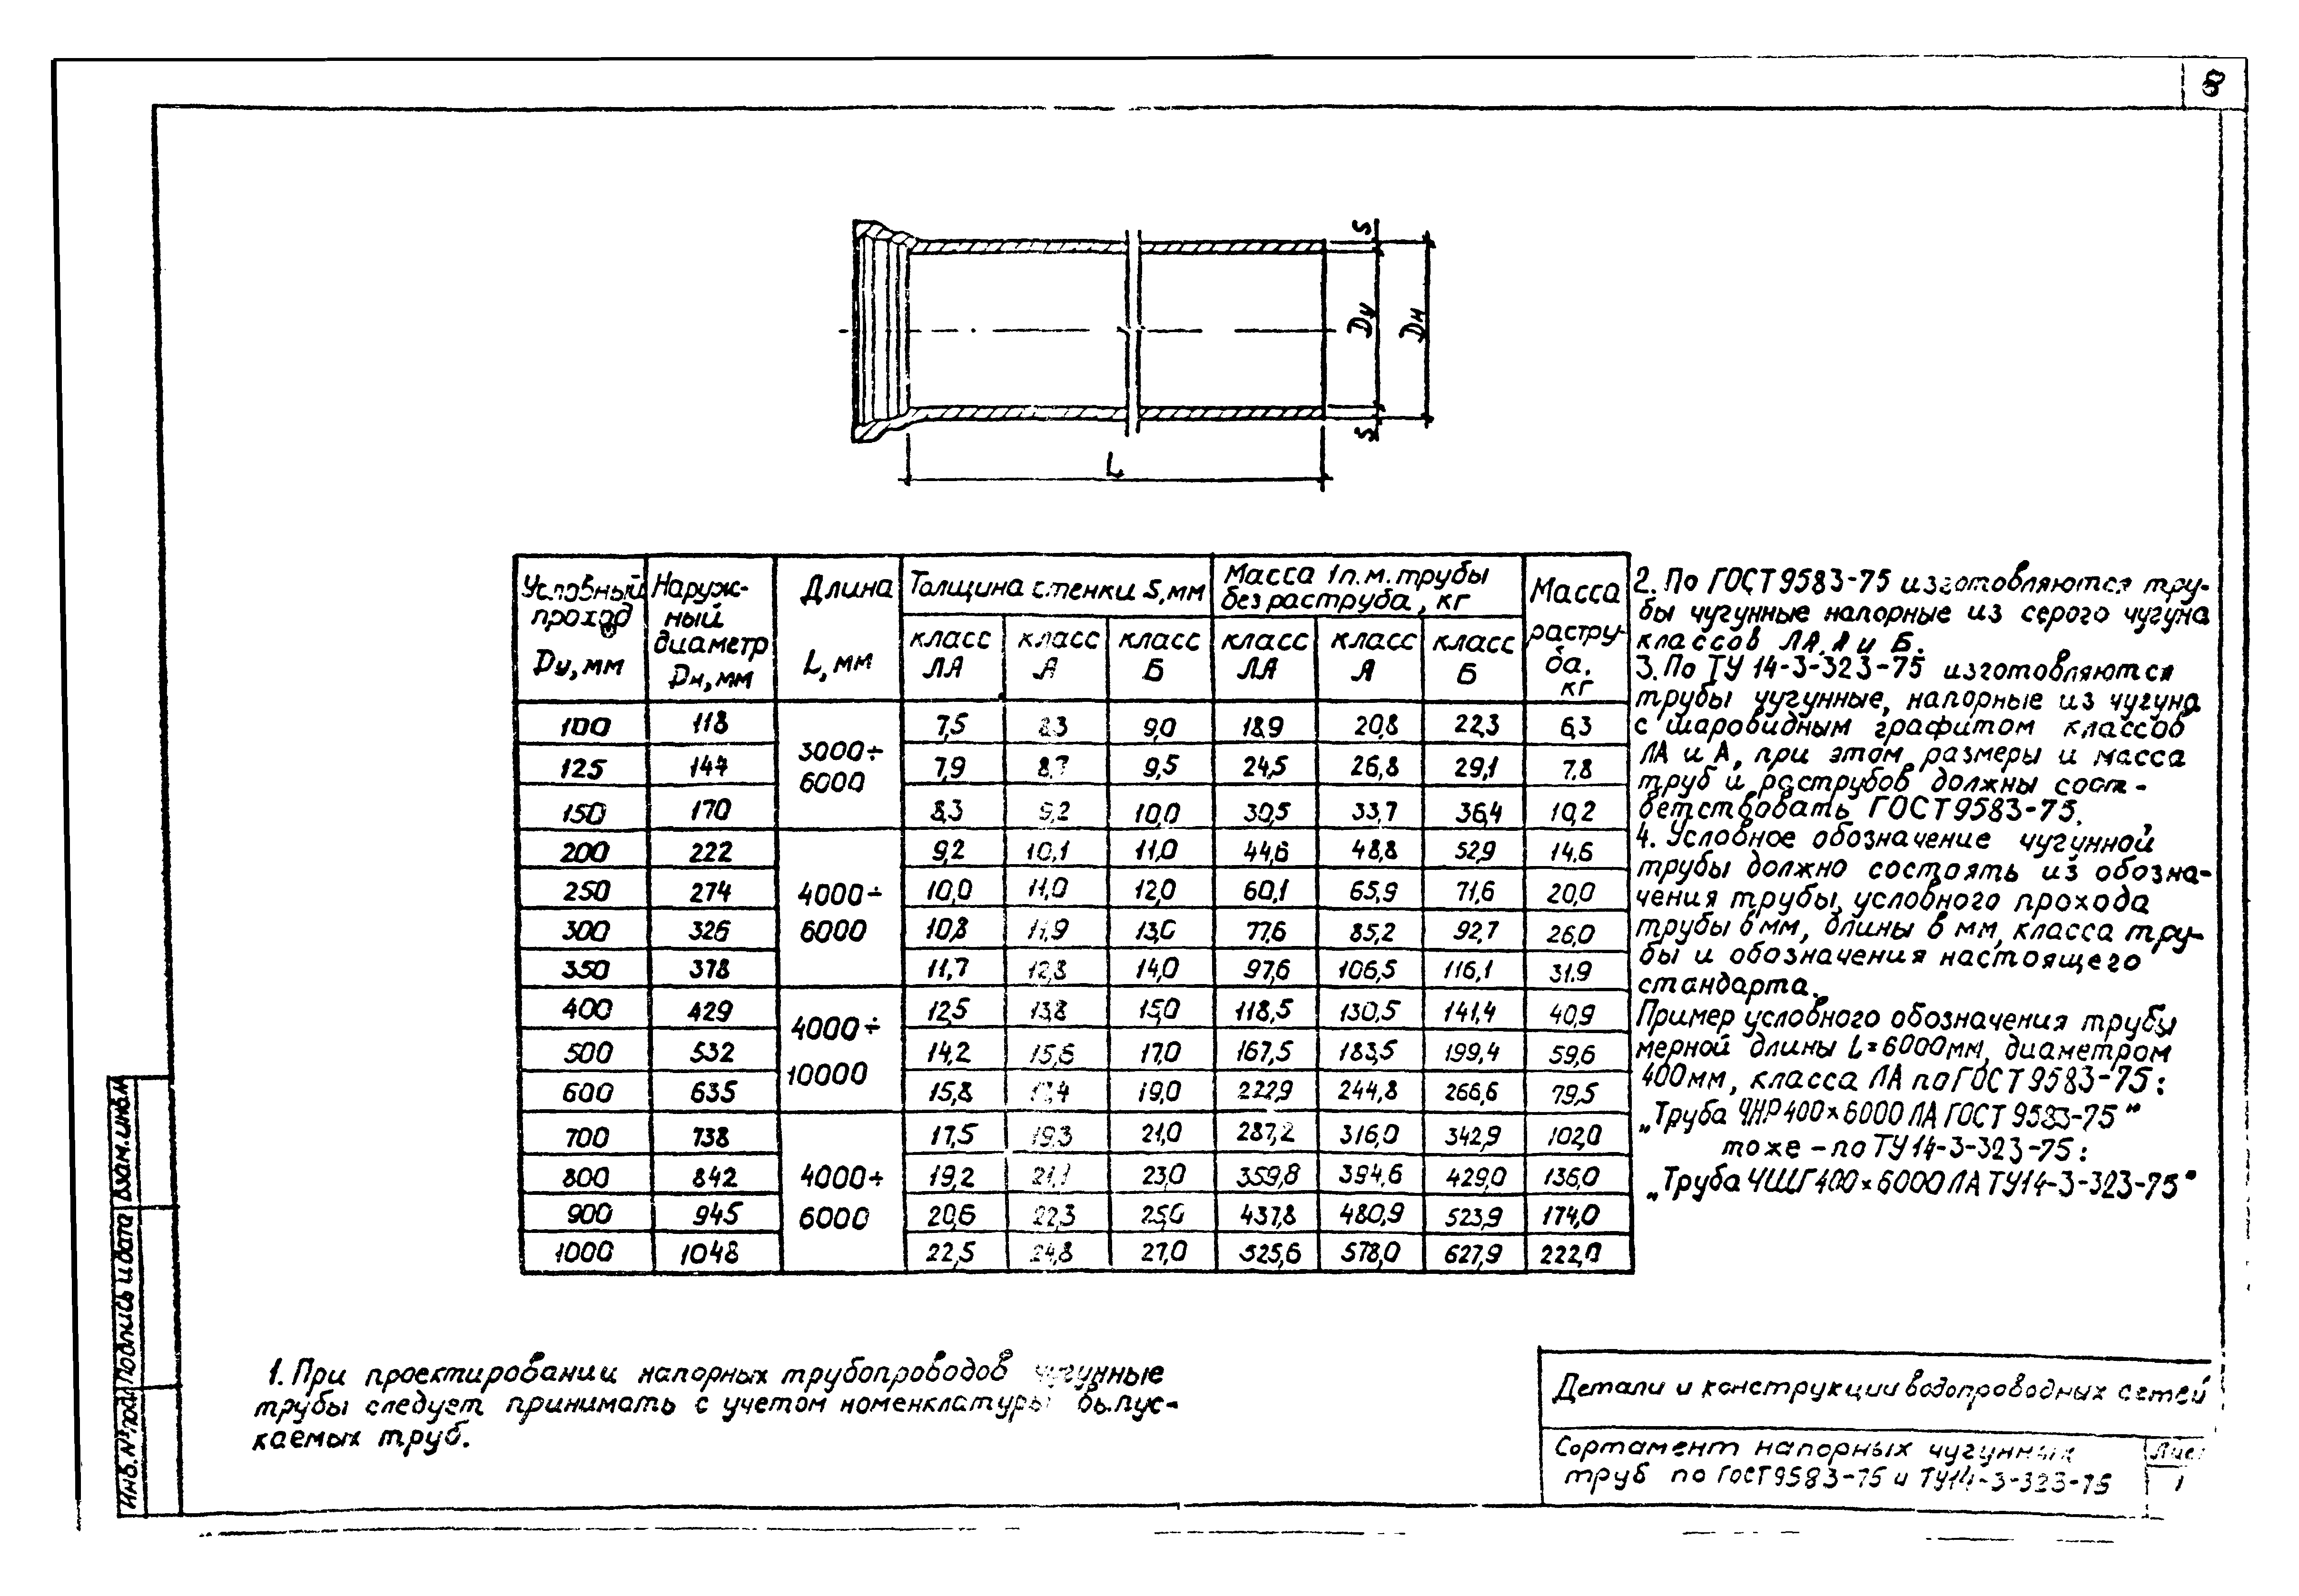 8
S
Dу
Dн
S
L
Условный проход Dу, мм | Наруж-ный диаметр Dн, мм | Длина L, мм | Толщина стенки S, мм | Масса 1 п.м. трубы без раструба, кг | Масса растру-ба. кг
класс ЛА | класс А | класс Б | класс ЛА | класс А | класс Б
100 | 118 | 3000÷6000 | 7,5 | 8,3 | 9,0 | 18,9 | 20,8 | 22,3 | 6,3
125 | 144 | 7,9 | 8,7 | 9,5 | 24,5 | 26,8 | 29,1 | 7,8
150 | 170 | 8,3 | 9,2 | 10,0 | 30,5 | 33,7 | 36,4 | 10,2
200 | 222 | 4000÷6000 | 9,2 | 10,1 | 11,0 | 44,6 | 48,8 | 52,9 | 14,6
250 | 274 | 10,0 | 11,0 | 12,0 | 60,1 | 65,9 | 71,6 | 20,0
300 | 326 | 10,8 | 11,9 | 13,0 | 77,6 | 85,2 | 92,7 | 26,0
350 | 378 | 11,7 | 12,8 | 14,0 | 97,6 | 106,5 | 116,1 | 31,9
400 | 429 | 4000÷10000 | 12,5 | 13,8 | 15,0 | 118,5 | 130,5 | 141,4 | 40,9
500 | 532 | 14,2 | 15,6 | 17,0 | 167,5 | 183,5 | 199,4 | 59,6
600 | 635 | 15,8 | 17,4 | 19,0 | 222,9 | 244,8 | 266,6 | 79,5
700 | 738 | 4000÷6000 | 17,5 | 19,3 | 21,0 | 287,2 | 316,0 | 342,9 | 102,0
800 | 842 | 19,2 | 21,1 | 23,0 | 359,8 | 394,6 | 429,0 | 136,0
900 | 945 | 20,6 | 22,3 | 25,0 | 437,8 | 480,9 | 523,9 | 174,0
1000 | 1048 | 22,5 | 24,8 | 27,0 | 525,6 | 578,0 | 627,9 | 222,0
2. По ГОСТ 9583-75 изготовляются тру-
бы чугунные напорные из серого чугуна
классов ЛА, А и Б.
3. По ТУ 14-3-323-75 изготовляются
трубы чугунные, напорные из чугуна
с шаровидным графитом классов
ЛА и А, при этом размеры и масса
труб и раструбов должны соот-
ветствовать ГОСТ 9583-75.
4. Условное обозначение чугунной
трубы должно состоять из обозна-
чения трубы, условного прохода
трубы в мм, длины в мм, класса тру-
бы и обозначения настоящего
стандарта.
Пример условного обозначения трубы
мерной длины L=6000мм, диаметром
400мм, класса ЛА по ГОСТ 9583-75:
„Труба ЧНР 400×6000 ЛА ГОСТ 9583-75"
тоже - по ТУ 14-3-323-75:
„Труба ЧШГ 400×6000 ЛА ТУ14-3-323-75"
1. При проектировании напорных трубопроводов чугунные
трубы следует принимать с учетом номенклатуры выпус-
каемых труб.
Детали и конструкции водопроводных сетей
Сортамент напорных чугунных
труб по ГОСТ 9583-75 и ТУ14-3-323-75
Лист
1
Инв. № подл. Подпись и дата Взам. инв. №